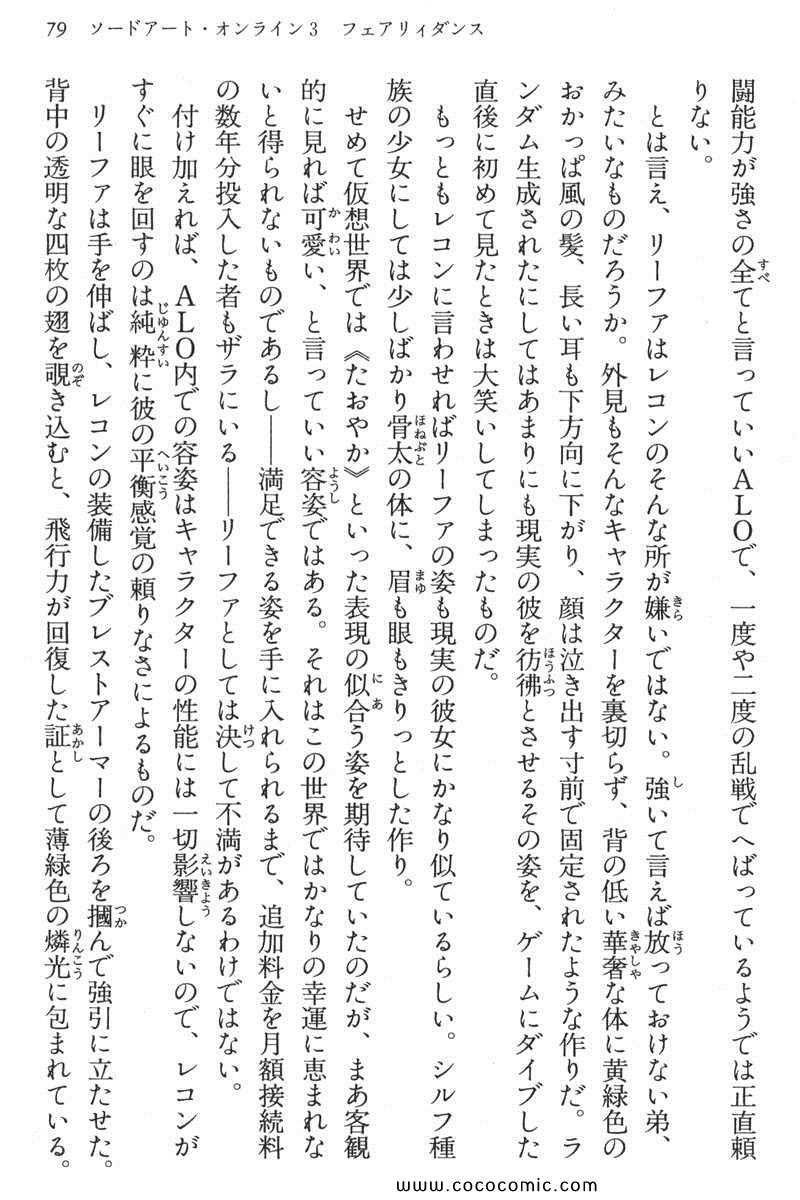 79 ソードアート・オンライン3 フェアリィダンス
闘能力が強さの全てと言っていいALOで、一度や二度の乱戦でへばっているようでは正直頼
りない。
とは言え、リーファはレコンのそんな所が嫌いではない。強いて言えば放っておけない弟、
みたいなものだろうか。外見もそんなキャラクターを裏切らず、背の低い華奢な体に黄緑色の
おかっぱ風の髪、長い耳も下方向に下がり、顔は泣き出す寸前で固定されたような作りだ。ラ
ンダム生成されたにしてはあまりにも現実の彼を彷彿とさせるその姿を、ゲームにダイブした
直後に初めて見たときは大笑いしてしまったものだ。
もっともレコンに言わせればリーファの姿も現実の彼女にかなり似ているらしい。シルフ種
族の少女にしては少しばかり骨太の体に、眉も眼もきりっとした作り。
せめて仮想世界では《たおやか》といった表現の似合う姿を期待していたのだが、まあ客観
的に見れば可愛い、と言っていい容姿ではある。それはこの世界ではかなりの幸運に恵まれな
いと得られないものであるし――満足できる姿を手に入れられるまで、追加料金を月額接続料
の数年分投入した者もザラにいる――リーファとしては決して不満があるわけではない。
付け加えれば、ALO内での容姿はキャラクターの性能には一切影響しないので、レコンが
すぐに眼を回すのは純粋に彼の平衡感覚の頼りなさによるものだ。
リーファは手を伸ばし、レコンの装備したブレストアーマーの後ろを摑んで強引に立たせた。
背中の透明な四枚の翅を覗き込むと、飛行力が回復した証として薄緑色の燐光に包まれている。
www.cococomic.com/